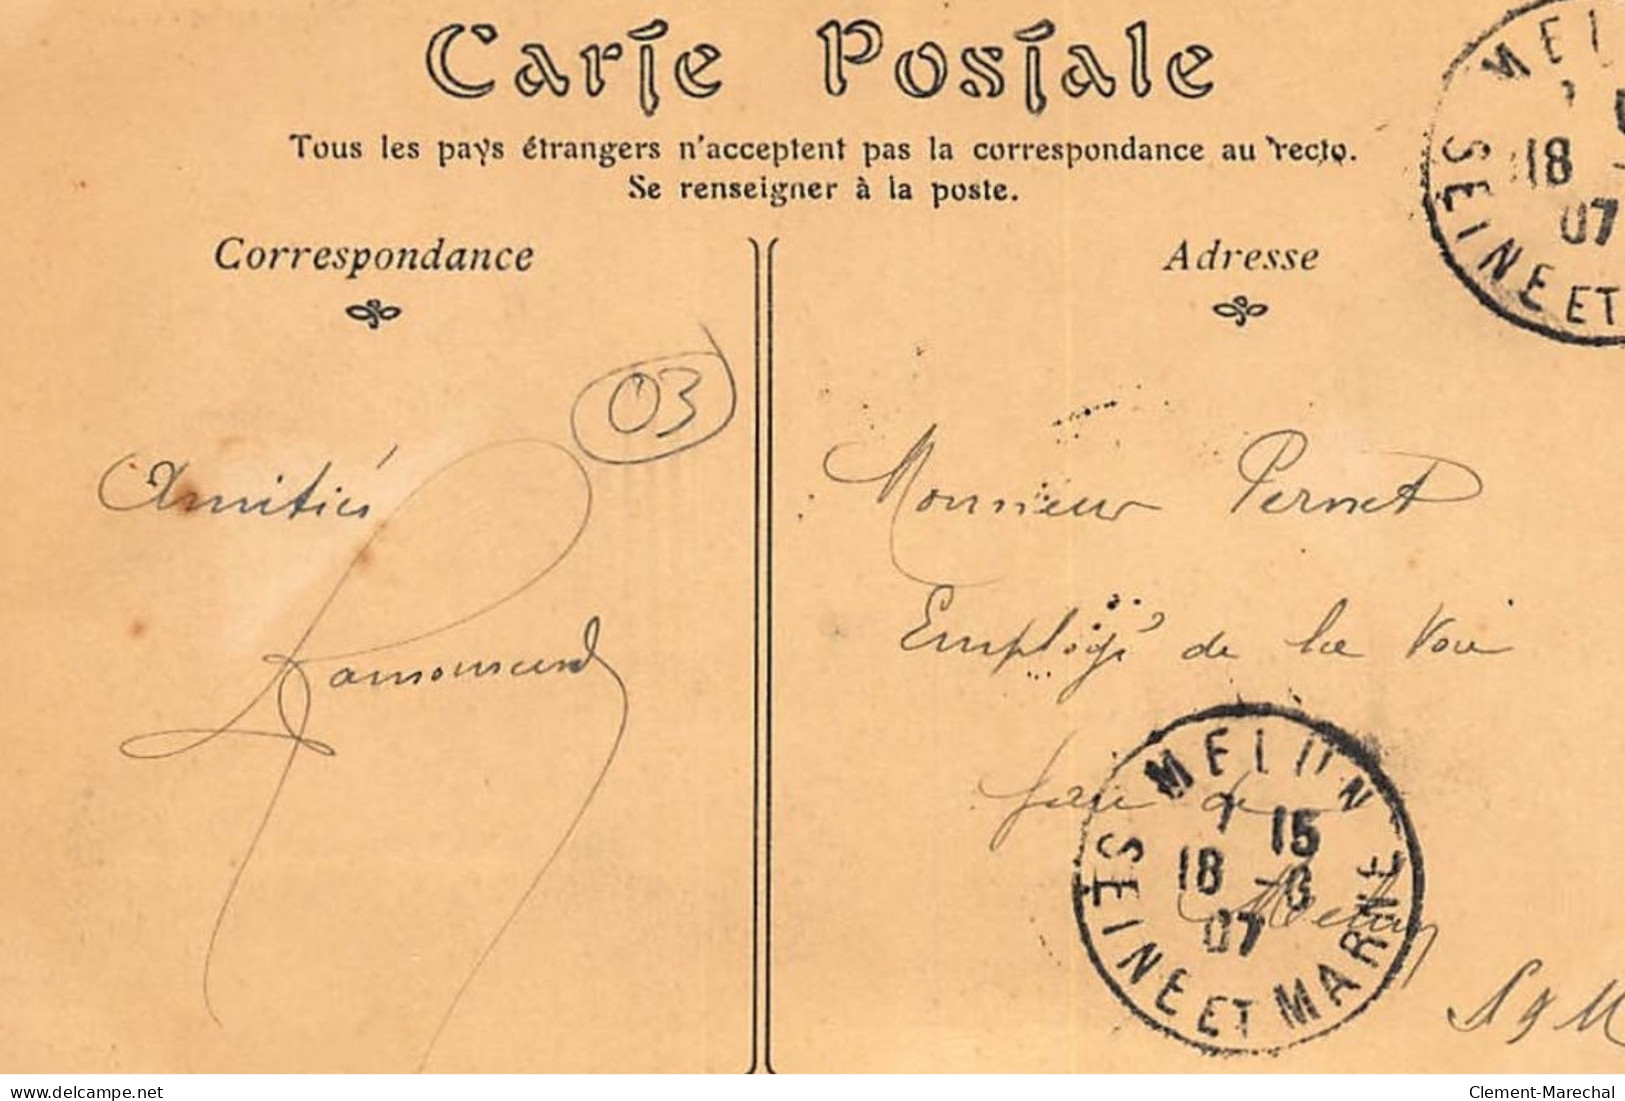 Carte Postale
Tous les pays étrangers n'acceptent pas la correspondance au recto.
Se renseigner à la poste.
Correspondance
Adresse
03
Amitiés
Monsieur Pernet
Employé de la Voie
Gare de
Melun
S & M
MELUN
7 15
18 -6
07
SEINE ET MARNE
MEL
18
07
SEINE ET
www.delcampe.net
Clement-Marechal